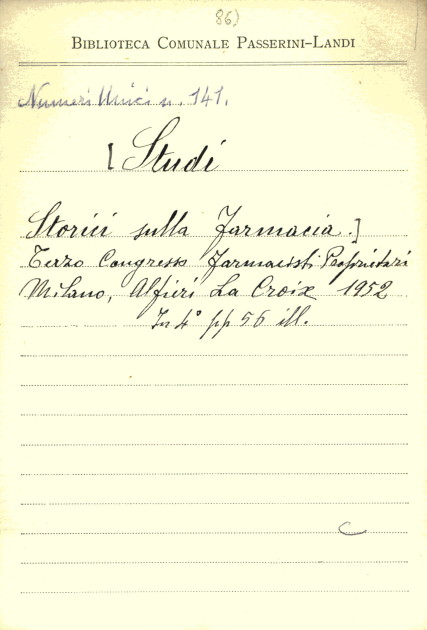 86)
BIBLIOTECA COMUNALE PASSERINI-LANDI
Numeri Unici n. 141.
[Studi
Storici sulla Farmacia.]
Terzo Congresso Farmacisti Proprietari
Milano, Alfieri La Croix 1952
In 4° pp 56 ill.
C